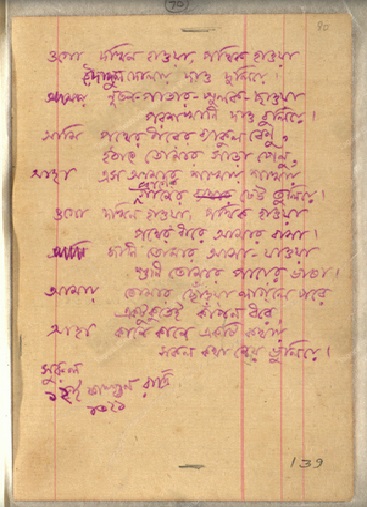 70
90
ওগো দখিন হাওয়া, পথিক হাওয়া
দোদুল দোলায় দাও দুলিয়ে।
নূতন-পাতার-পুলক-ছাওয়া
পরশখানি দাও বুলিয়ে।
আমি পথের ধারের ব্যাকুল বেণু,
হঠাৎ তোমার সাড়া পেনু,
আহা এস আমার শাখায় শাখায়
প্রাণের গানের ঢেউ তুলিয়ে।
ওগো দখিন হাওয়া, পথিক হাওয়া
পথের ধারে আমার বাসা।
জানি তোমার আসা-যাওয়া
শুনি তোমার পায়ের ভাষা।
আমায় তোমার ছোঁওয়া লাগলে পরে
একটুকুতেই কাঁপন ধরে
আহা কানে কানে একটি কথায়
সকল কথা নেয় ভুলিয়ে।
সুরুল
ফাল্গুন রাত্রি
139